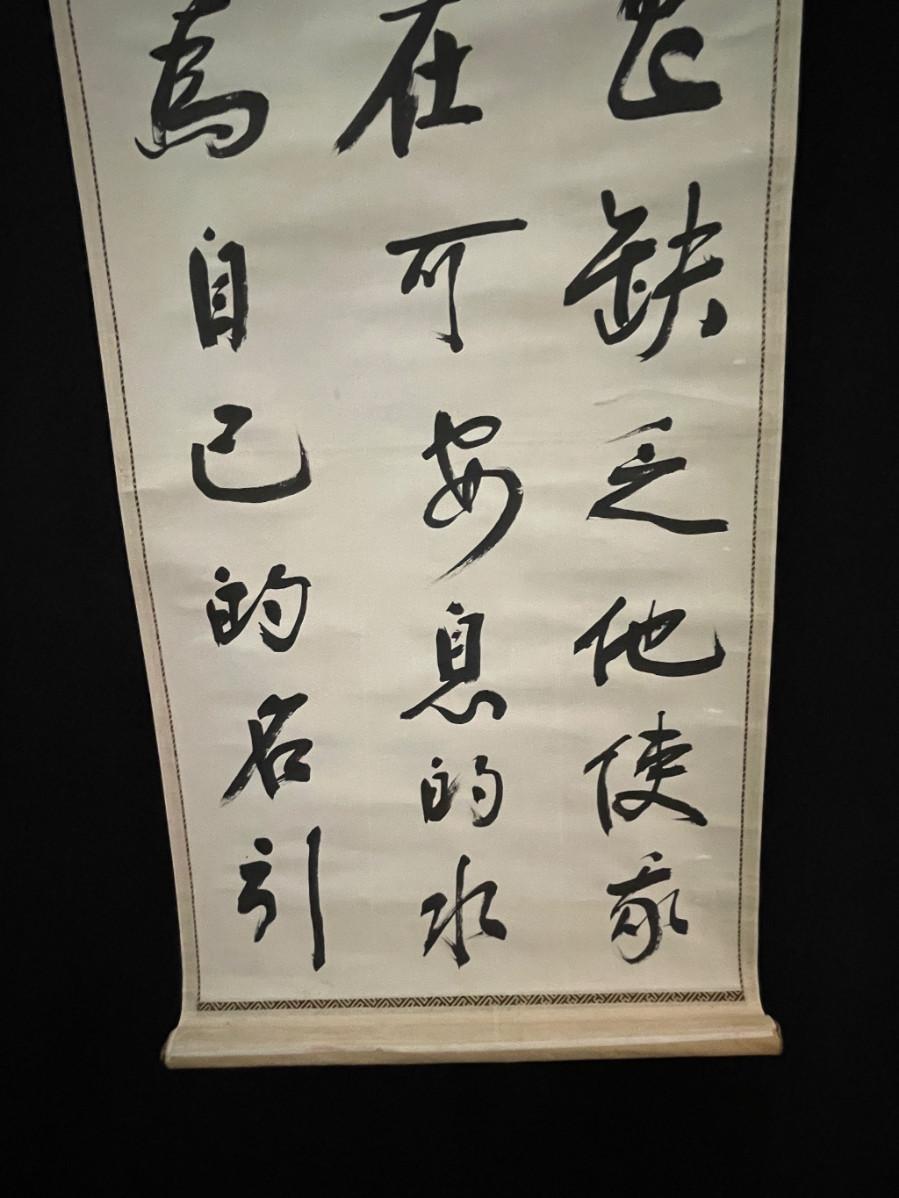 缺乏他使我
在可安息的水
為自己的名引